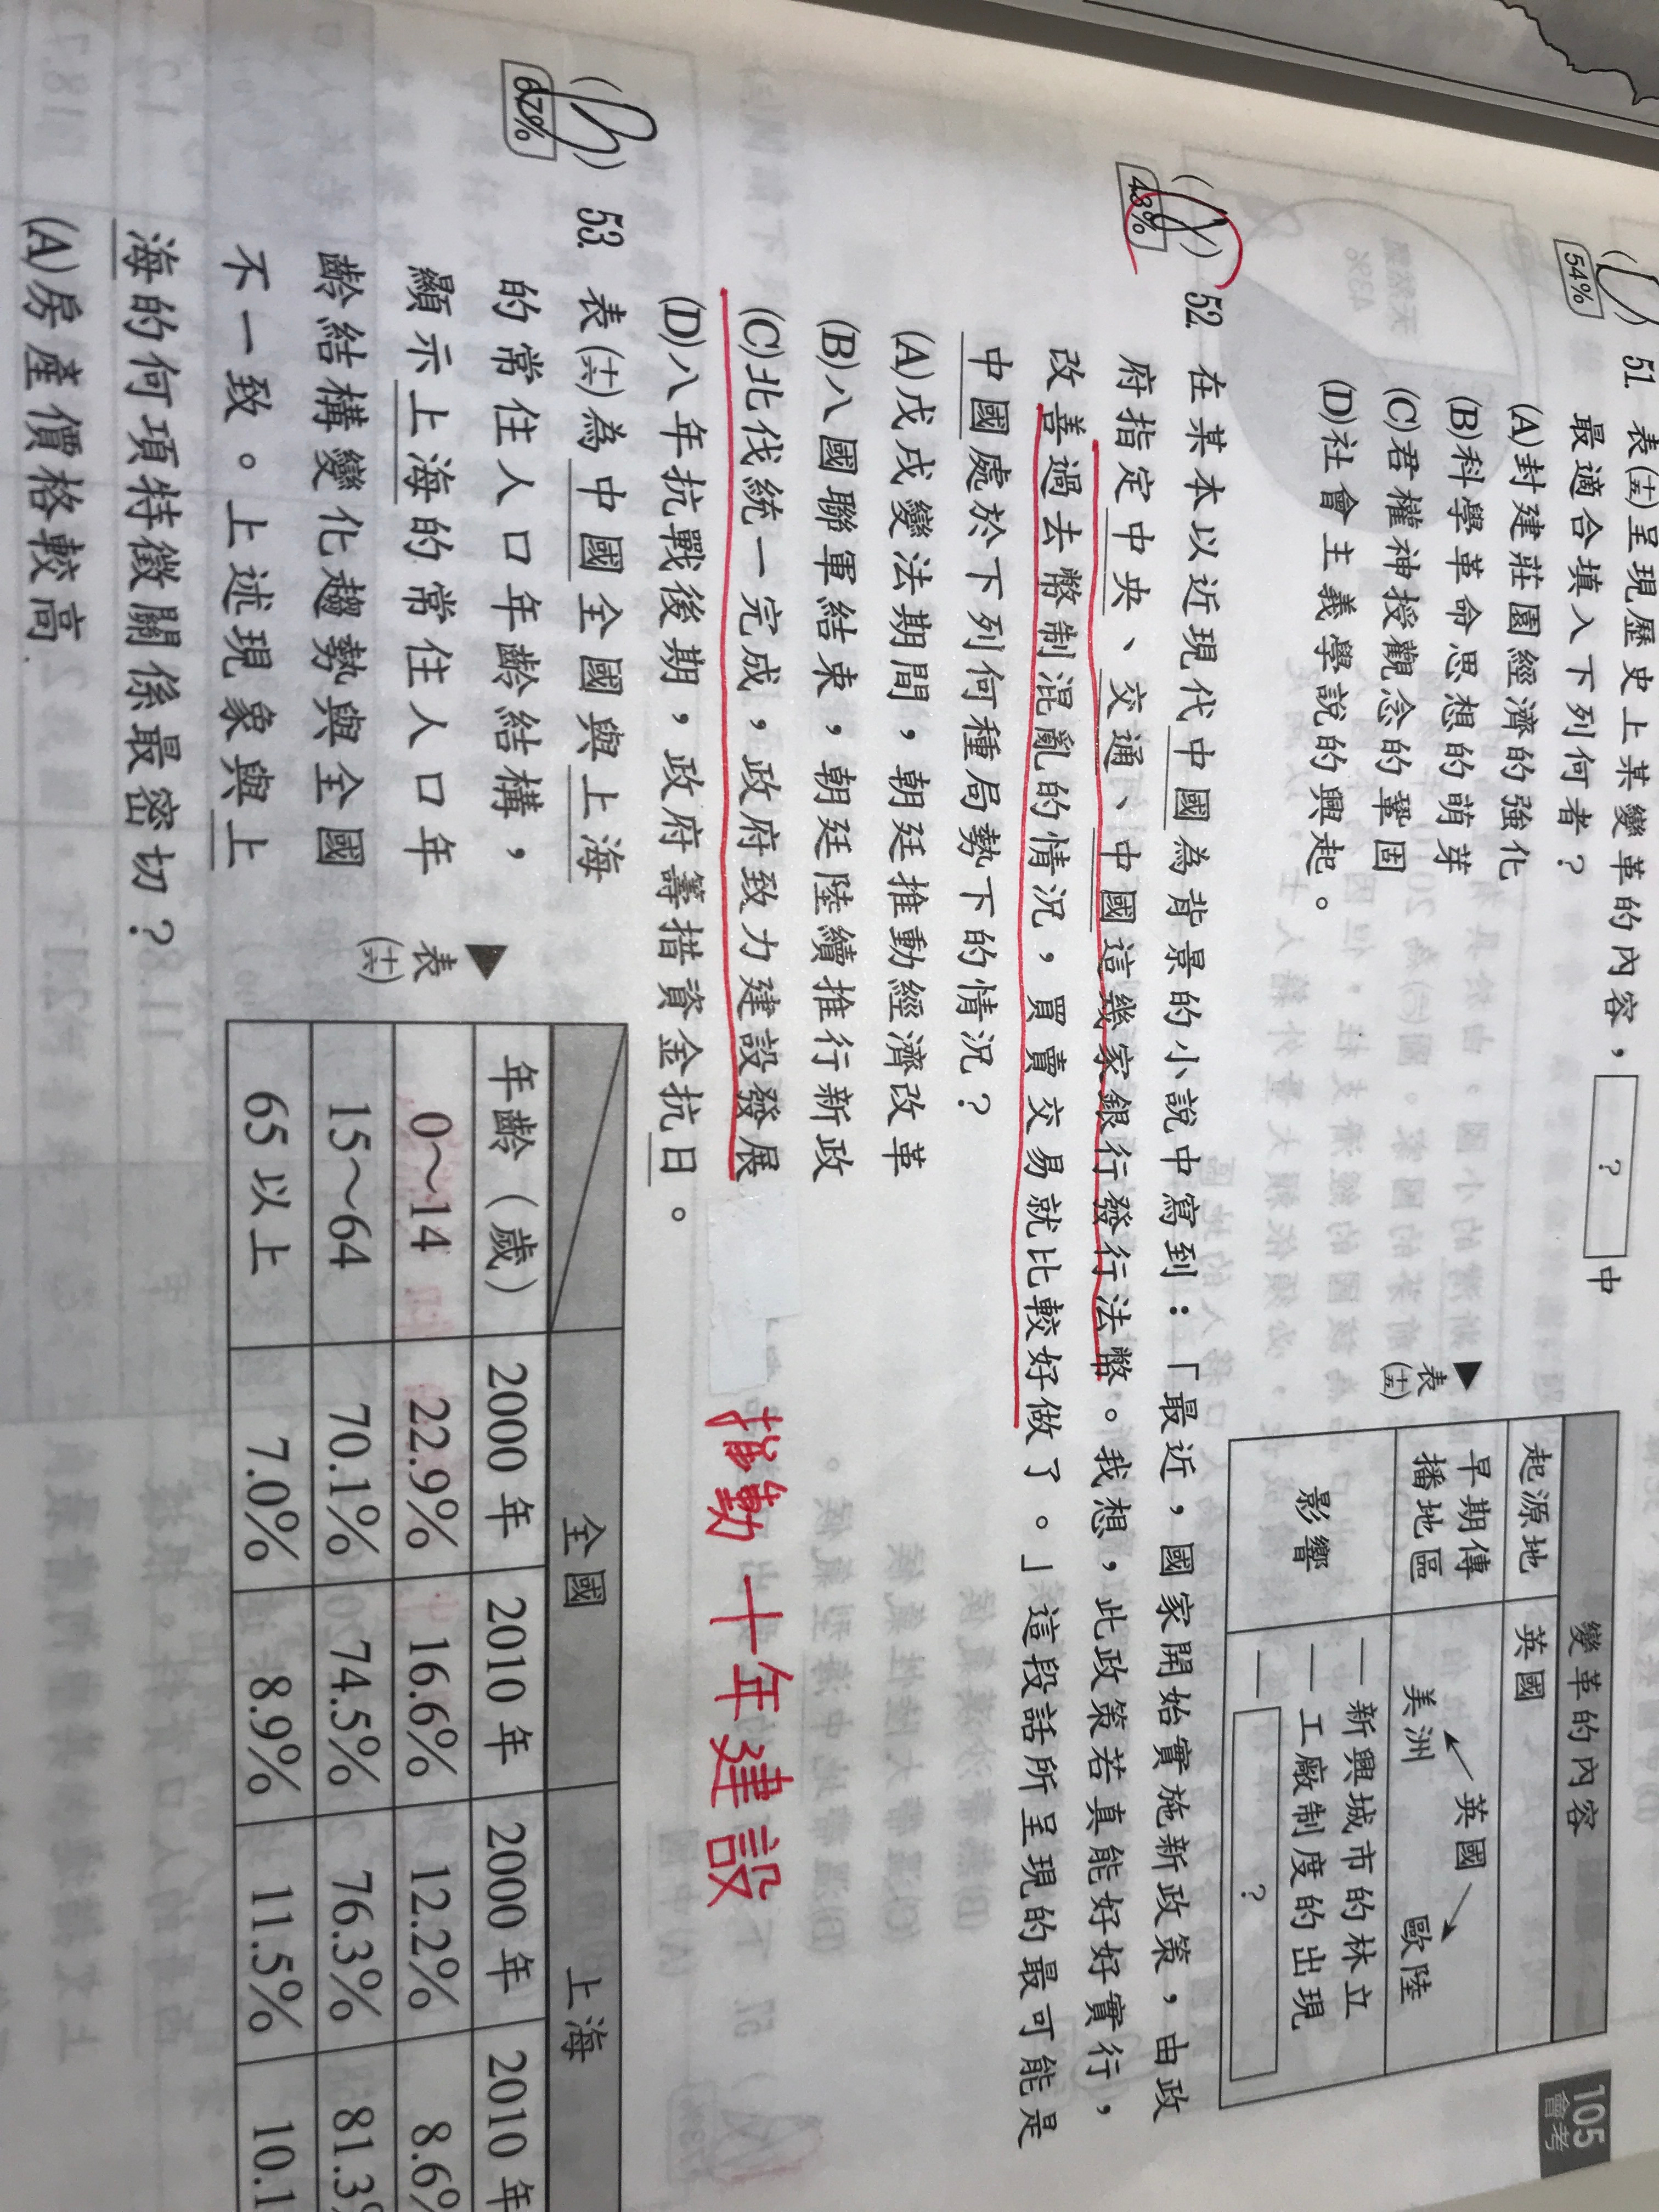 105
會考
(D) 54% 51. 表(十五)呈現歷史上某變革的內容，？中
最適合填入下列何者？
(A)封建莊園經濟的強化
(B)科學革命思想的萌芽
(C)君權神授觀念的鞏固
(D)社會主義學說的興起。
▶表(十五)
變革的內容
起源地 英國
早期傳播地區 美洲 ← 英國 → 歐陸
影響 — 新興城市的林立
— 工廠制度的出現
— ？
48% 52. 在某本以近現代中國為背景的小說中寫到：「最近，國家開始實施新政策，由政
府指定中央、交通、中國這幾家銀行發行法幣。我想，此政策若真能好好實行，
改善過去幣制混亂的情況，買賣交易就比較好做了。」這段話所呈現的最可能是
中國處於下列何種局勢下的情況？
(A)戊戌變法期間，朝廷推動經濟改革
(B)八國聯軍結束，朝廷陸續推行新政
(C)北伐統一完成，政府致力建設發展
推動十年建設
(D)八年抗戰後期，政府籌措資金抗日。
67% 53. 表(十六)為中國全國與上海
的常住人口年齡結構，
顯示上海的常住人口年
齡結構變化趨勢與全國
不一致。上述現象與上
海的何項特徵關係最密切？
(A)房產價格較高
▶表(十六)
全國 上海
年齡（歲） 2000 年 2010 年 2000 年 2010 年
0～14 22.9% 16.6% 12.2% 8.6%
15～64 70.1% 74.5% 76.3% 81.3%
65 以上 7.0% 8.9% 11.5% 10.1